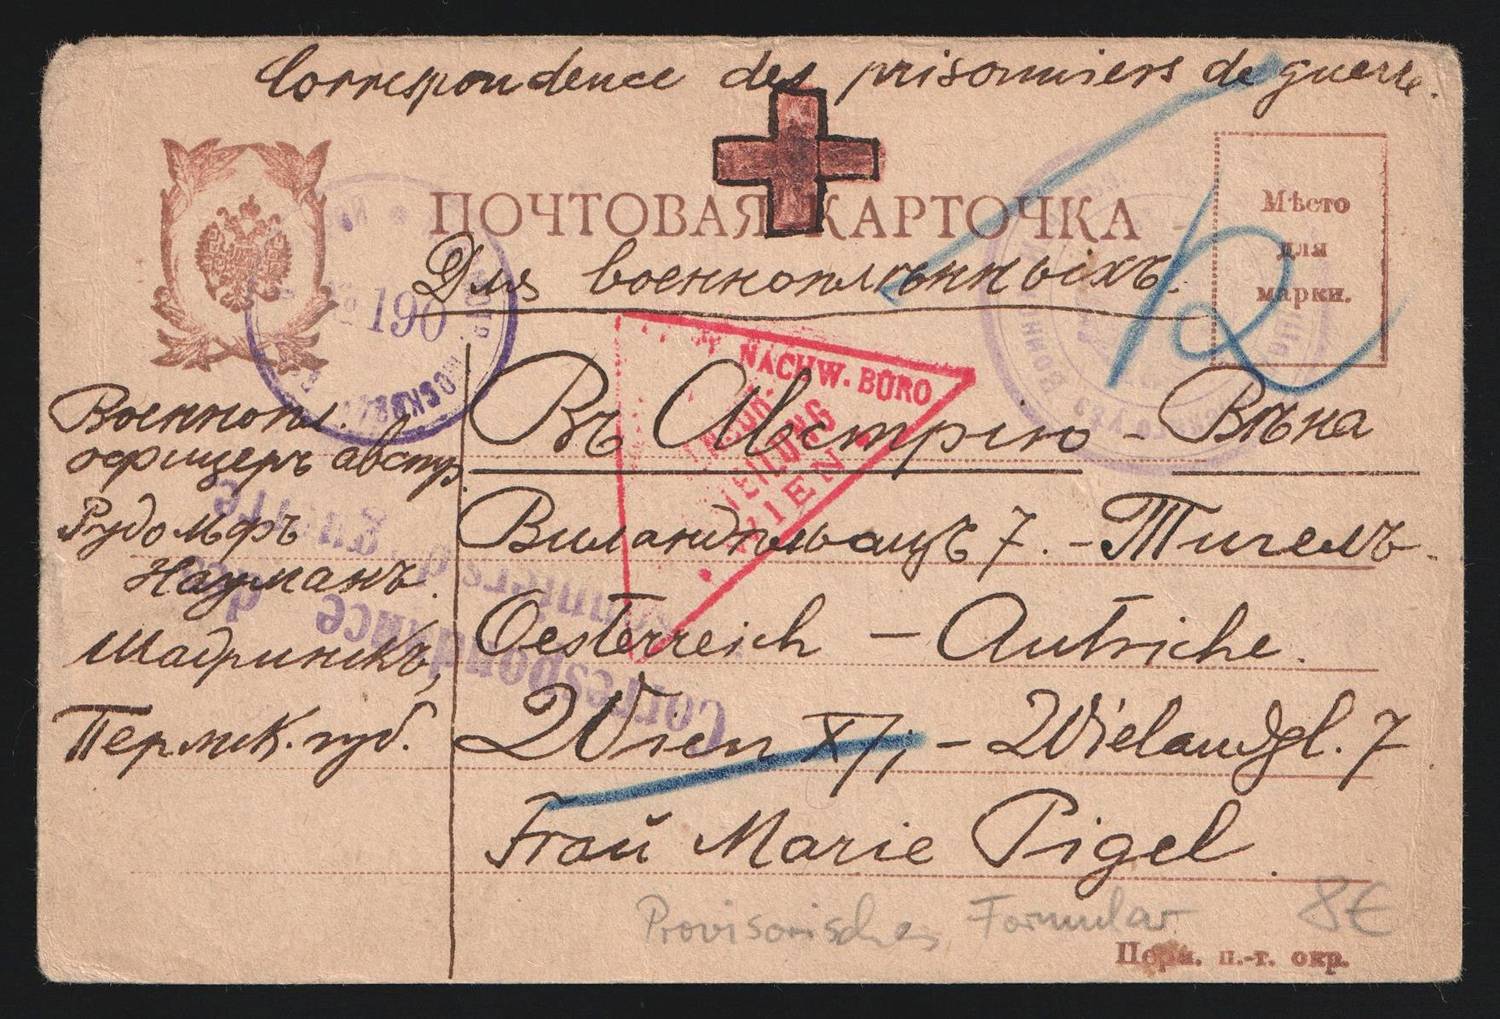 Correspondence des prisonniers de guerre.
ПОЧТОВАЯ КАРТОЧКА
Мѣсто
для
марки.
Для военноплѣнныхъ.
№ 190
NACHW. BÜRO
WIEN
Военнопл.
офицеръ австр.
Рудольфъ
Науманъ.
Шадринскъ,
Пермск. губ.
Въ Австрію - Вѣна
7. - Тигель.
Oesterreich - Autriche.
Wien X/1 - Wielandgl. 7
Frau Marie Pigel
Correspondance des
prisonniers de guerre
Provisorisches Formular 8€
Перм. п.-т. окр.